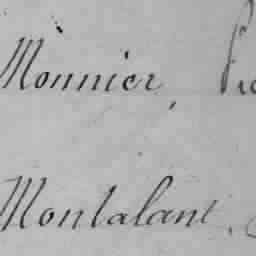 Monnier, Pie
Montalant,